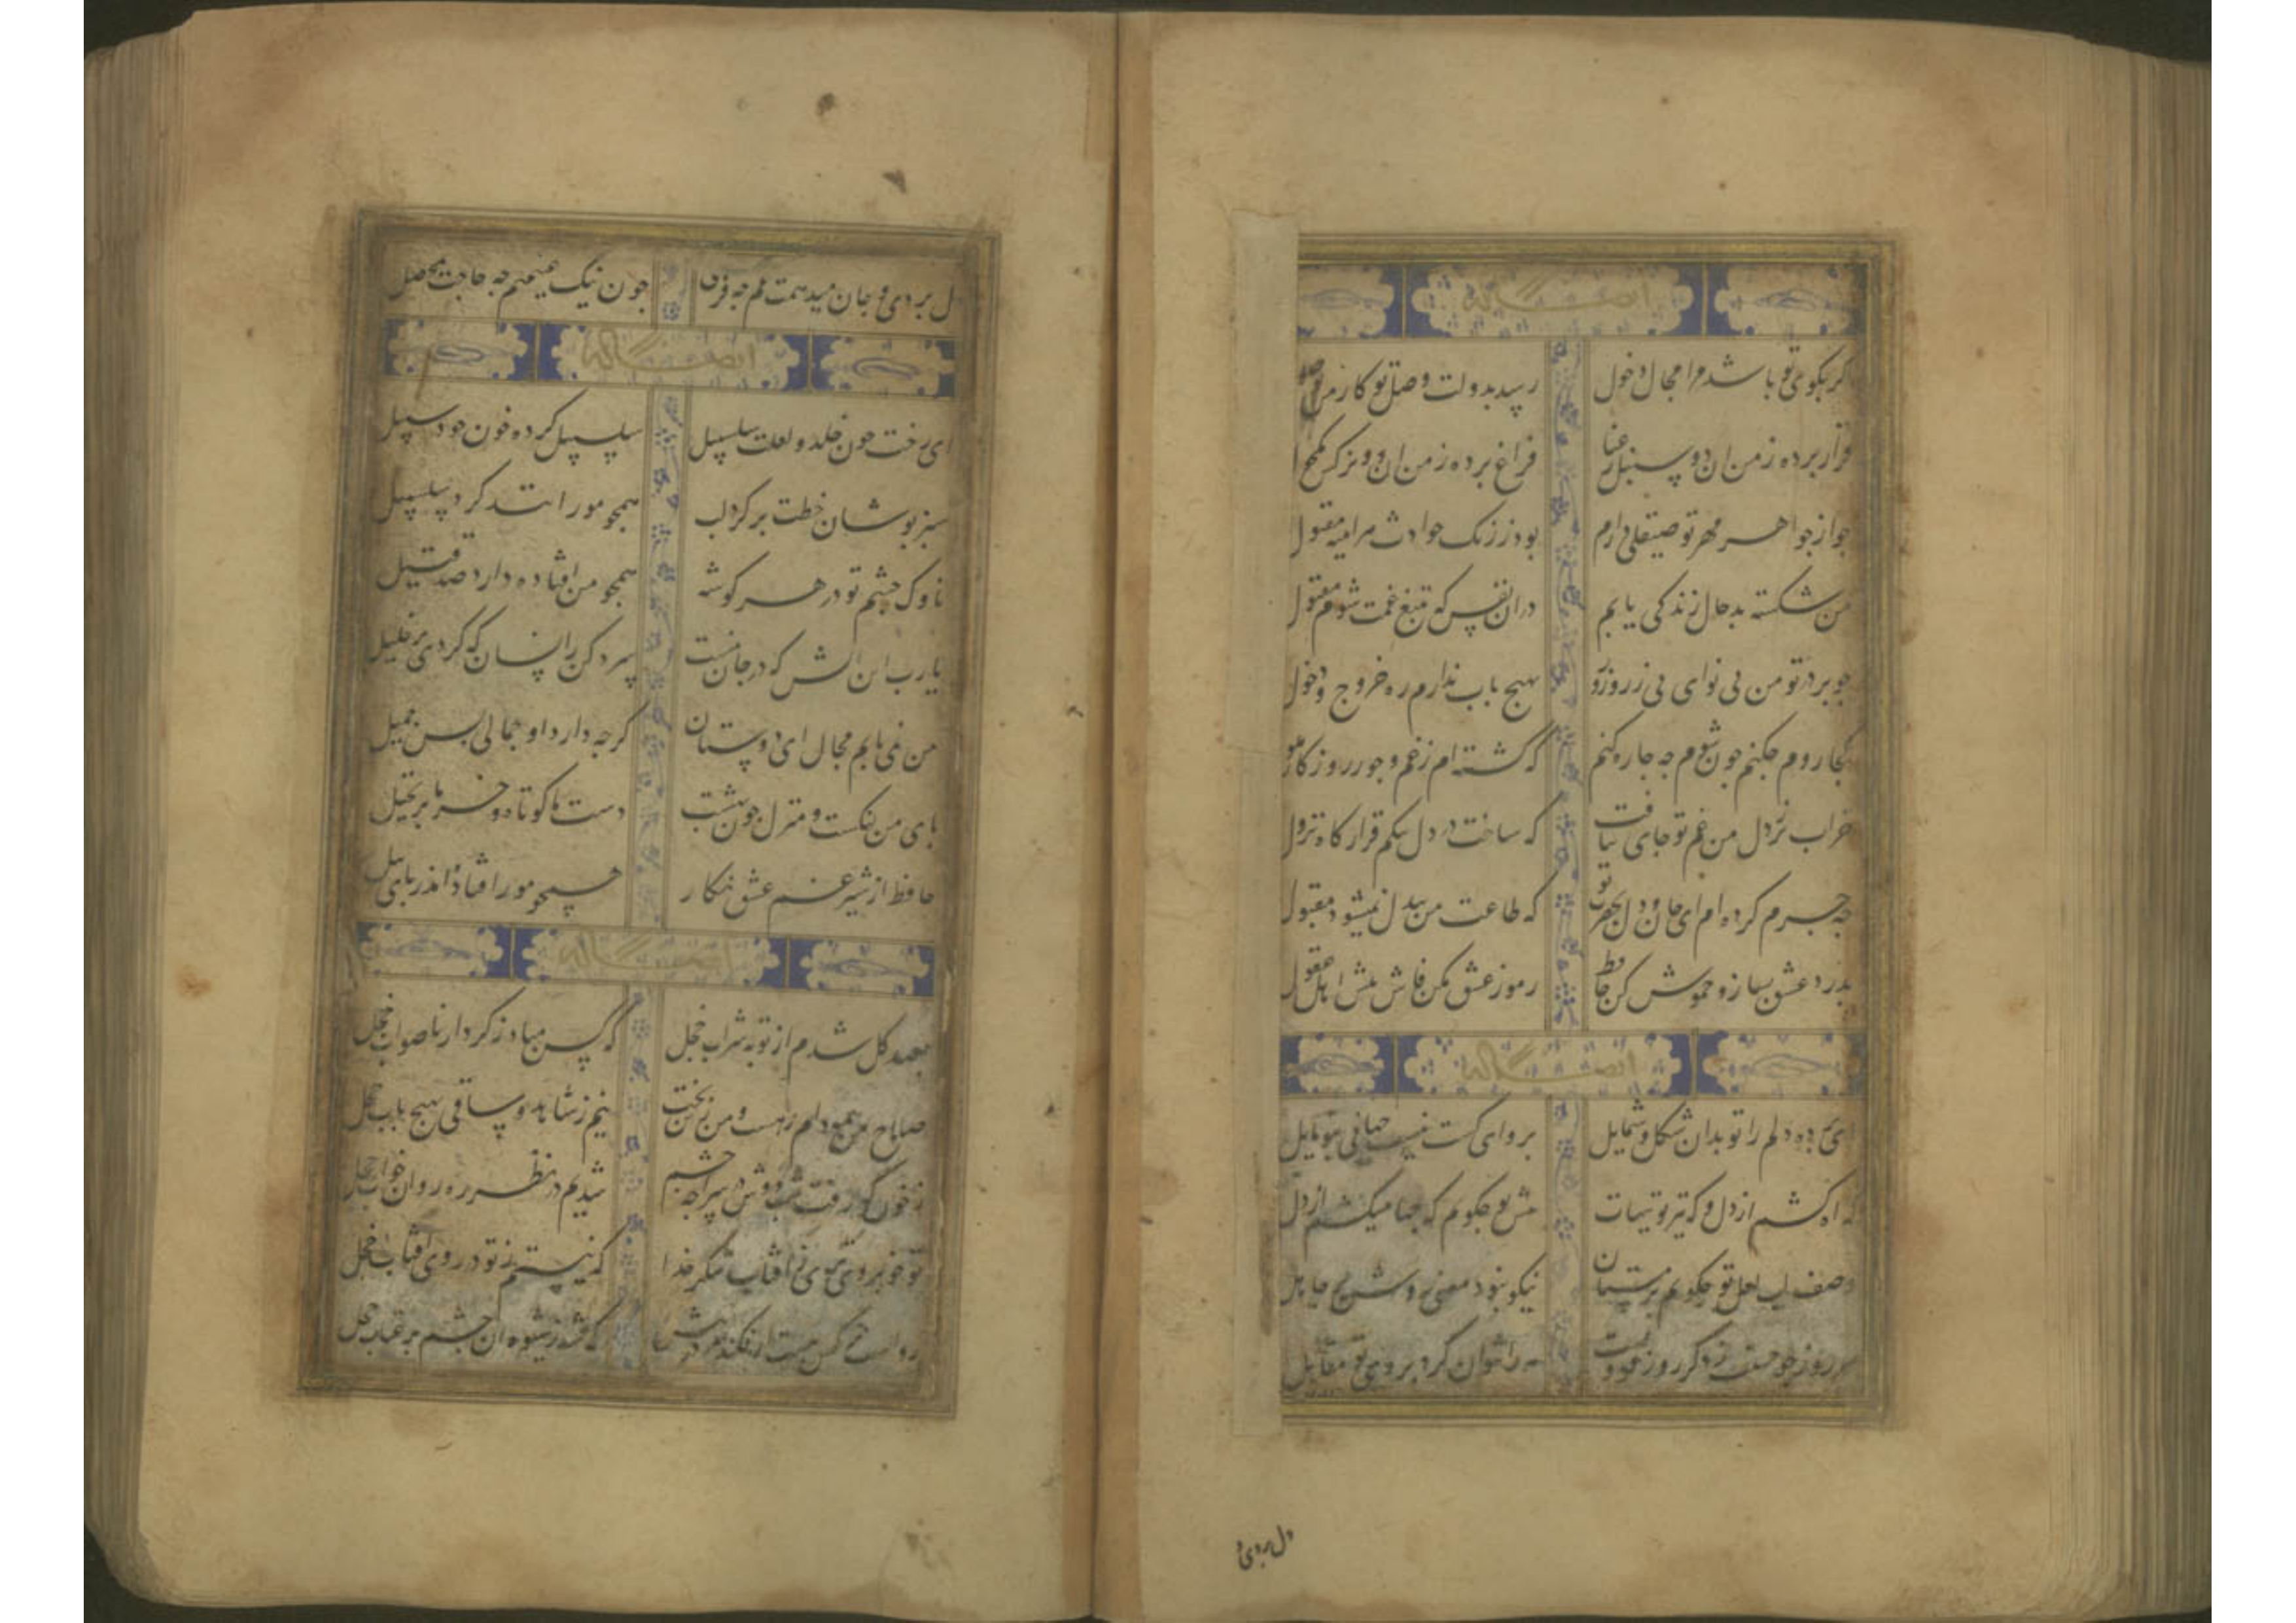 ایضاً له
اگر بکوی تو باشد مرا مجال وصول
رسد بدولت وصل تو کار من
قرار برده ز من ان دو سنبل رعنا
فراغ برده ز من ان دو نرکس
چو از جواهر مهر تو صیقلی دارم
بود ز زنک حوادث مر اینه مقتول
من شکسته بدحال زندکی یابم
دران نفس که بتیغ غمت شوم مقتول
چو بر در تو من بی نوای بی زر و زور
بهیچ باب ندارم ره خروج و دخول
کجا روم چکنم چون شوم چه چاره کنم
که کشته ام ز غم و جور روزکار
خراب تر ز دل من غم تو جای نیافت
که ساخت در دل تنکم قرار کاه نزول
چه جرم کرده ام ای جان و دل بحضرت تو
که طاعت من بیدل نمیشود مقبول
بدرد عشق بساز و خموش کن حافظ
رموز عشق مکن فاش پیش اهل عقول
ایضاً له
ای برده دلم را تو بدان شکل و شمایل
پروای کست نیست جهانی بتو مایل
که اه کشم از دل و که تیر تو
پیش تو چکویم که چها میکشم از دل
وصف لب لعل تو چکویم برقیبان
نیکو نبود معنی
هر روز چو حسنت ز دکر روز فزونست
مه را نتوان کرد بروی تو مقابل
دل بردی و
دل بردی و جان میدهمت غم چه فرستی
چون نیک غمینیم چه حاجت بمحصل
ایضاً له
ای رخت چون خلد و لعلت سلسبیل
سلسبیلت کرده خون خود سبیل
سبز پوشان خطت بر کرد لب
همچو مورانند کرد سلسبیل
ناوک چشم تو در هر کوشه
همچو من افتاده دارد صد قتیل
یارب این اتش که در جان منست
سرد کن زانسان که کردی بر خلیل
من نمی یابم مجال ای دوستان
کرچه دارد او جمالی بس جمیل
پای من لنکست و منزل چون بهشت
دست ما کوتاه و خرما بر نخیل
حافظ از شیر غم عشق نکار
همچو مور افتاده اندر پای پیل
ایضاً له
بعهد کل شدم از توبه شراب خجل
که کس مباد ز کردار ناصواب خجل
صلاح من همه دام رهست و من زین بخت
نیم ز شاهد و ساقی بهیچ باب خجل
ز خون که رفت شب دوش در سراچه چشم
شدیم در نظر ره روان خواب خجل
تو خوبروی تری ز افتاب شکر خدا
که نیستم ز تو در روی افتاب خجل
رواست نرکس مست ار فکند سر در پیش
که شد ز شیوه ان چشم پر عتاب خجل